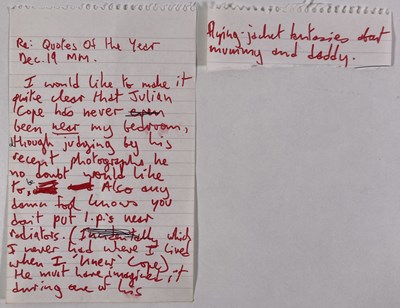 Re: Quotes Of the Year
Dec. 19 MM.
I would like to make it
quite clear that Julian
Cope has never even
been near my bedroom,
though judging by his
recent photographs he
no doubt would like
to. Also any
damn fool knows you
don't put l.p.'s near
radiators. (Incidentally which
I never had where I lived
when I 'knew' Cope)
He must have imagined it
during one of his
flying-jacket fantasies about
mummy and daddy.